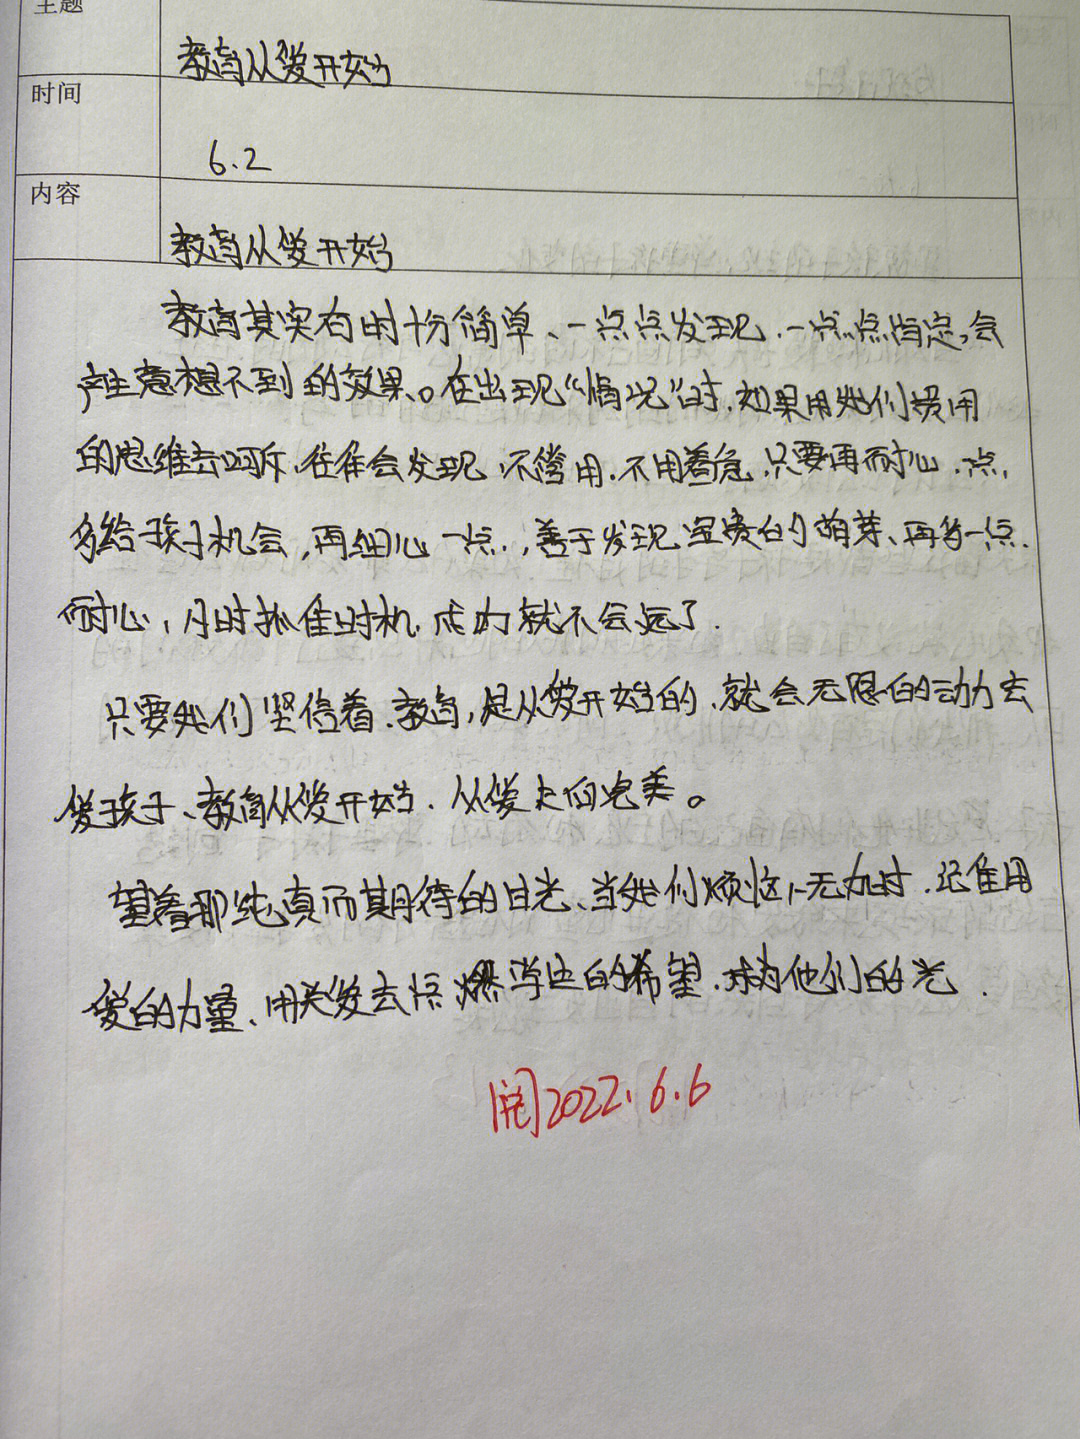 主题
教育从爱开始
时间
6.2
内容
教育从爱开始
教育其实有时十分简单、一点点发现.一点点肯定,会
产生意想不到的效果。在出现“情况”时,如果用我们惯用
的思维去呵斥.往往会发现,不管用.不用着急.只要再耐心一点,
多给孩子机会,再细心一点,善于发现宝贵的萌芽、再多一点
耐心,及时抓住时机,成功就不会远了.
只要我们坚信着.教育,是从爱开始的.就会无限的动力去
爱孩子、教育从爱开始.从爱走向完美。
望着那纯真而期待的目光、当我们烦恼、无力时.记住用
爱的力量、用关爱去点燃学生的希望.成为他们的光.
阅2022.6.6